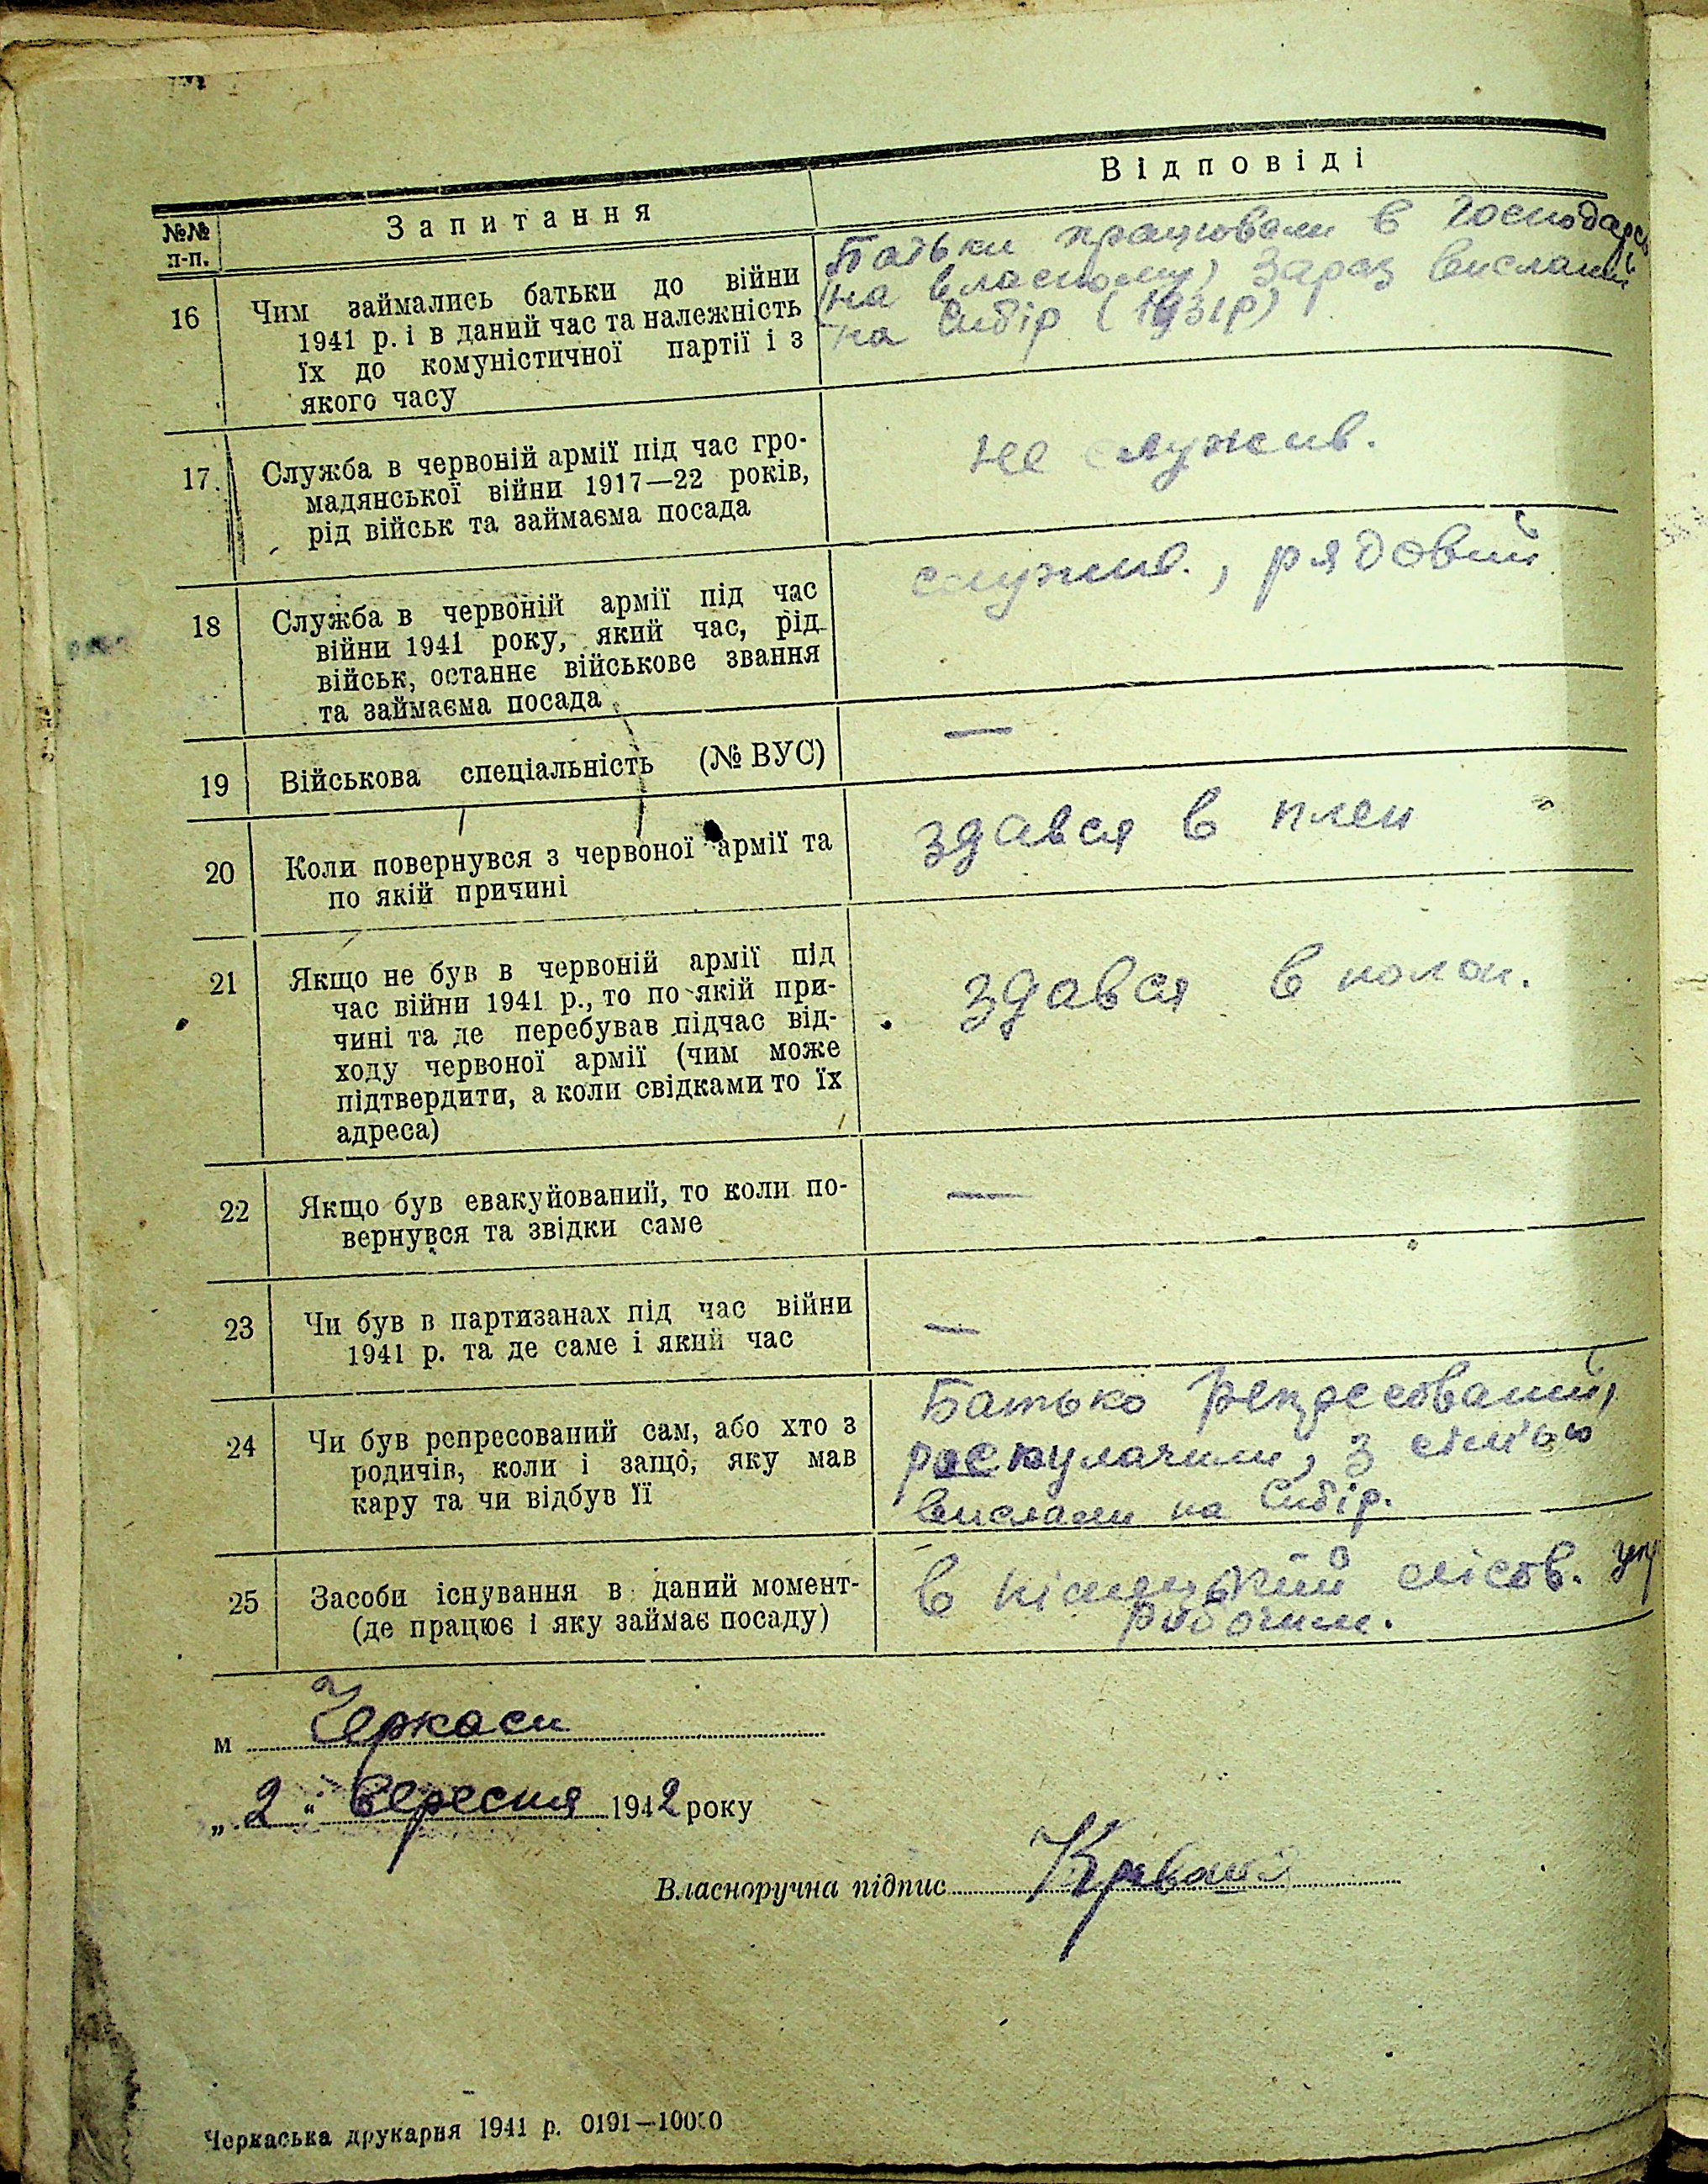 №№ п-п. Запитання Відповіді
16 Чим займались батьки до війни
1941 р. і в даний час та належність
їх до комуністичної партії і з
якого часу
Батьки працювали в господарсь
на власному, зараз вислані
на Сибір (1931р)
17. Служба в червоній армії під час гро-
мадянської війни 1917—22 років,
рід військ та займаєма посада
не служив.
18 Служба в червоній армії під час
війни 1941 року, який час, рід
військ, останнє військове звання
та займаєма посада
служив., рядовий
19 Військова спеціальність (№ ВУС)
—
20 Коли повернувся з червоної армії та
по якій причині
здався в плен
21 Якщо не був в червоній армії під
час війни 1941 р., то по якій при-
чині та де перебував підчас від-
ходу червоної армії (чим може
підтвердити, а коли свідками то їх
адреса)
здався в полон.
22 Якщо був евакуйований, то коли по-
вернувся та звідки саме
—
23 Чи був в партизанах під час війни
1941 р. та де саме і який час
—
24 Чи був репресований сам, або хто з
родичів, коли і защо, яку мав
кару та чи відбув її
Батько репресований,
роскулачили, з сім'ью
вислали на Сибір.
25 Засоби існування в даний момент-
(де працює і яку займає посаду)
в лісов.
робочим.
м Черкаси
„2“ вересня 1942 року
Власноручна підпис
Черкаська друкарня 1941 р. 0191—10000